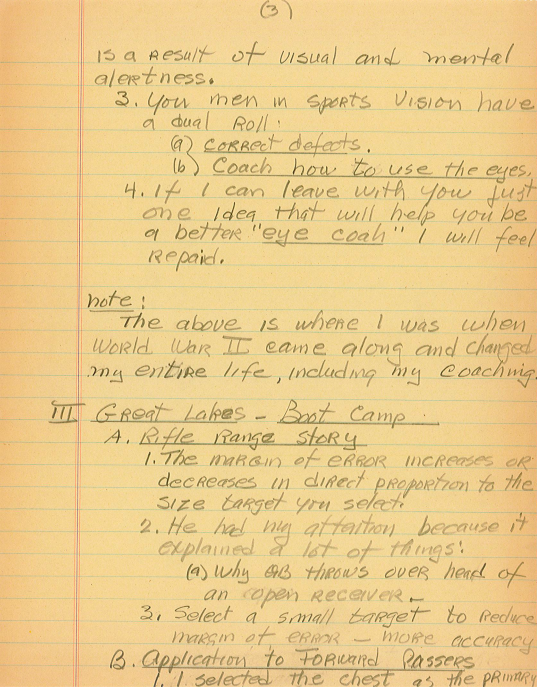 (3)
is a result of visual and mental
alertness.
3. You men in sports vision have
a dual roll:
(a) correct defects.
(b) Coach how to use the eyes.
4. If I can leave with you just
one idea that will help you be
a better "eye coah" I will feel
repaid.
note:
The above is where I was when
World War II came along and changed
my entire life, including my coaching.
III Great Lakes - Boot Camp
A. Rifle Range Story
1. The margin of error increases or
decreases in direct proportion to the
size target you select.
2. He had my attention because it
explained a lot of things:
(a) Why QB throws over head of
an open receiver.
3. Select a small target to reduce
margin of error - more accuracy
B. Application to Forward Passers
1. I selected the chest as the primary